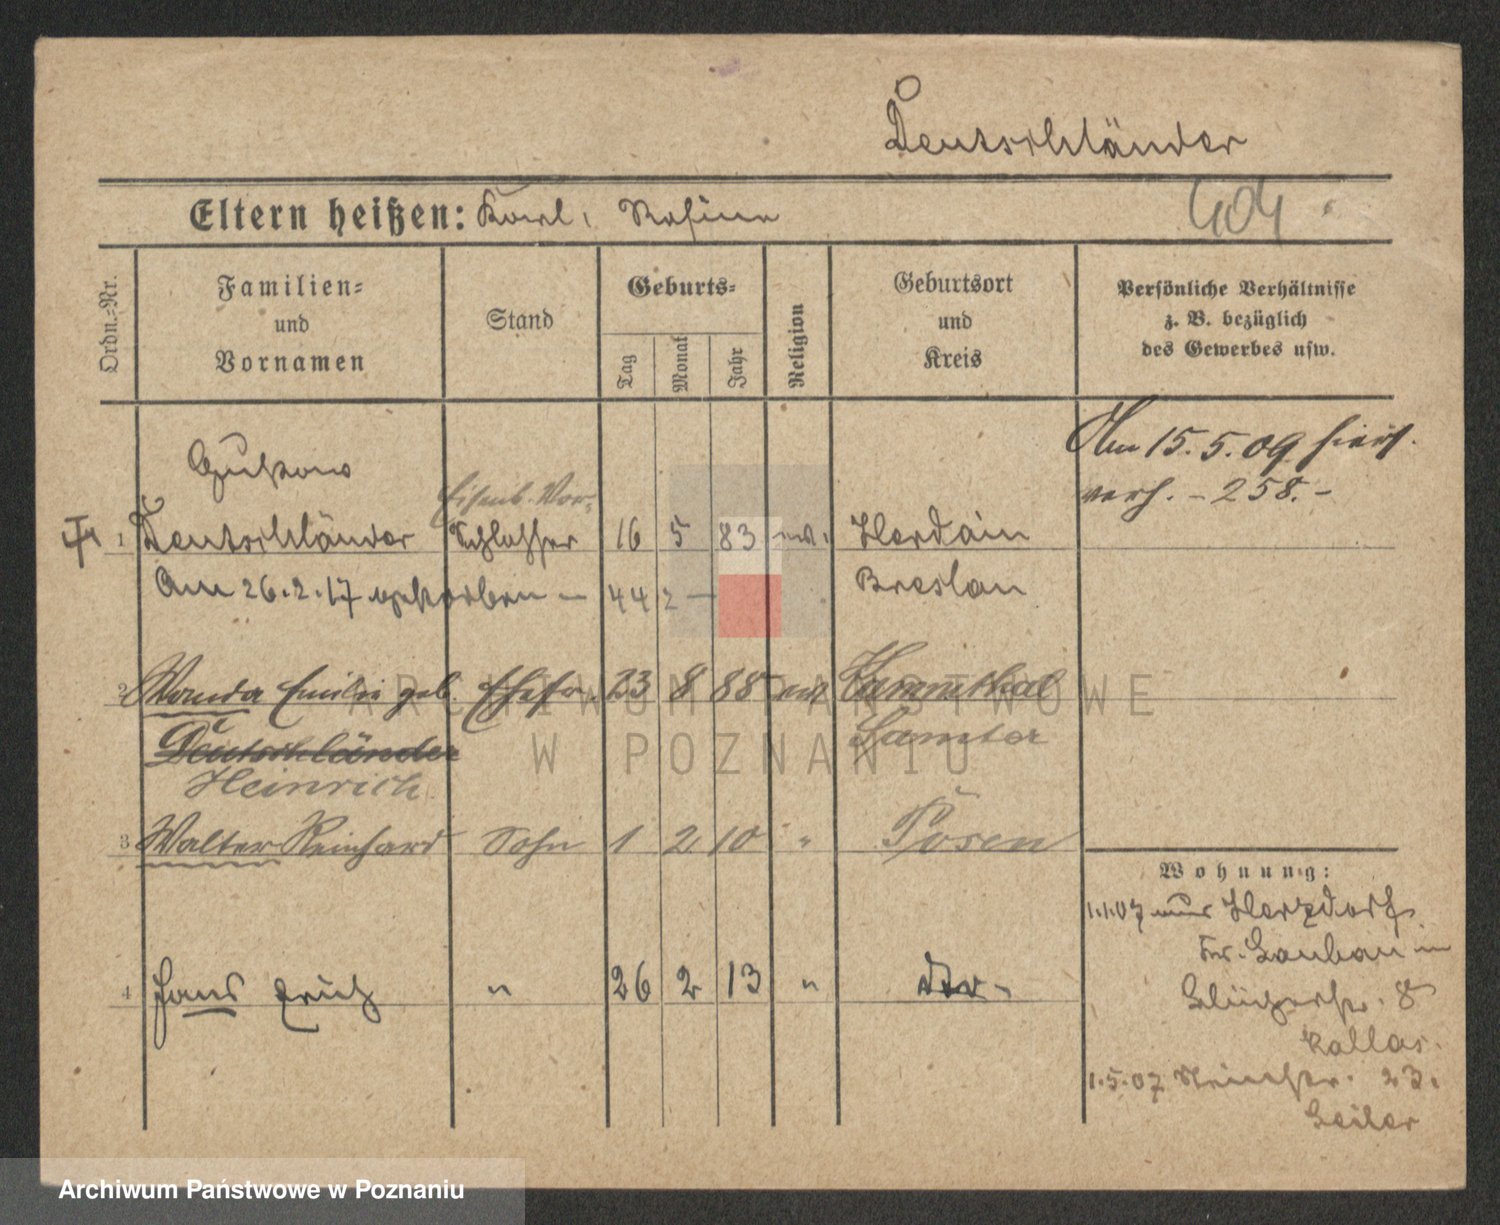 Deutschländer
Eltern heißen: Karl, Rosina
404
Ordn.-Nr.
Familien-
und
Vornamen
Stand
Geburts-
Tag
Monat
Jahr
Religion
Geburtsort
und
Kreis
Persönliche Verhältnisse
z. B. bezüglich
des Gewerbes usw.
Am 15.5.09 hier
verh. - 258. -
Gustav
Eisenb. Vor-
1 Deutschländer Schlosser 16 5 83 ev. Herdain
Am 26.2.17 gestorben - 442 - Breslau
2 Wanda Emilie geb. Ehefr. 23 8 88 ev. Hammthal
Deutschländer Samter
Heinrich
3 Walter Reinhard Sohn 1 2 10 " Posen
Wohnung:
1.1.07 aus Herzdorf
Kr. Lauban in
8
4 Hans Erich " 26 2 13 "
Kallas.
1.5.07 23.
Geiler
ARCHIWUM PAŃSTWOWE
W POZNANIU
Archiwum Państwowe w Poznaniu